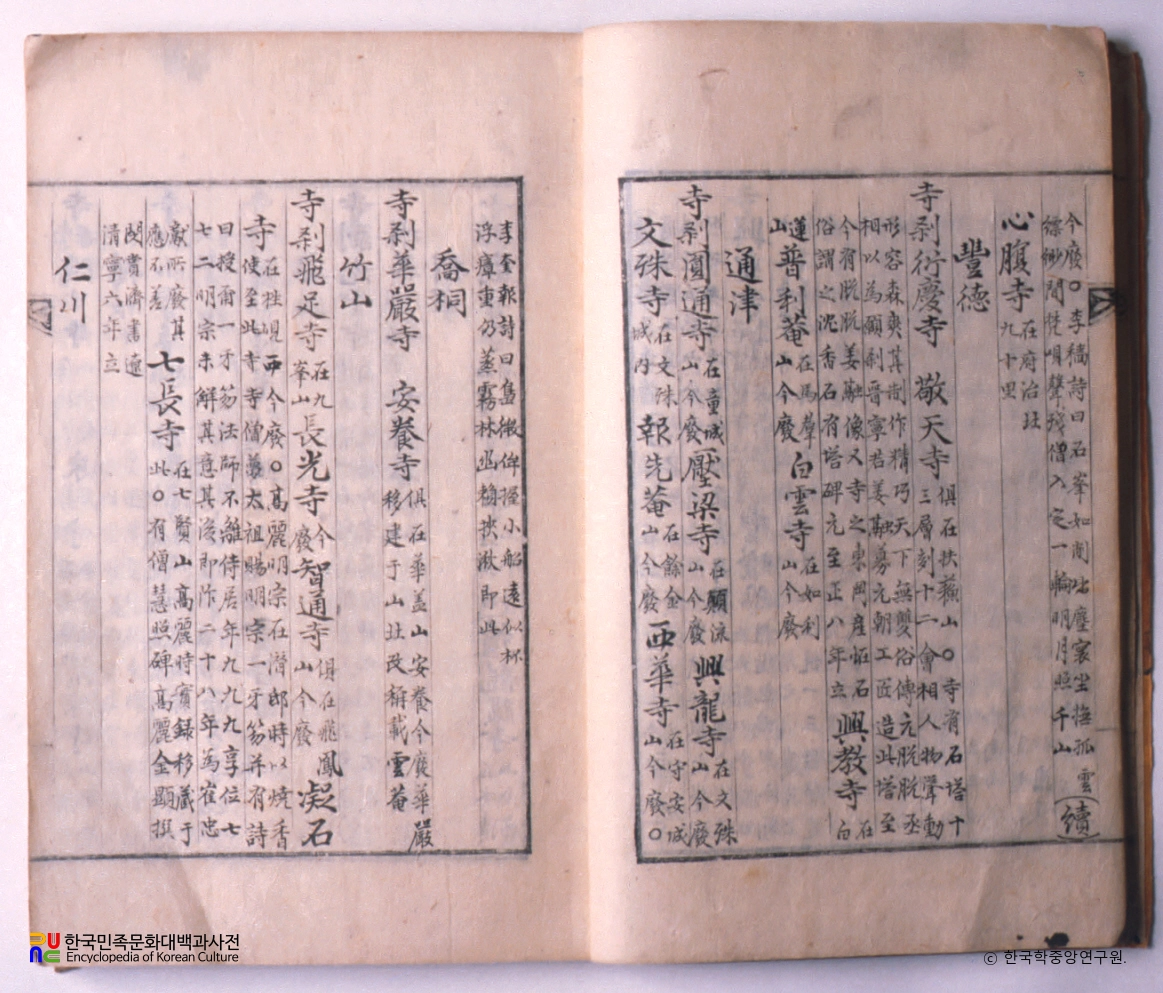 今廢○李穡詩曰石峯如削出塵寰坐撫孤雲(續)
縹緲間梵唄聲殘僧入定一輪明月照千山
心腹寺在府治北九十里
豐德
寺刹衍慶寺 敬天寺俱在扶蘇山○寺有石塔十三層刻十二會相人物聳動
形容森爽其制作精巧天下無雙俗傳元脫脫丞
相以為願刹晋寧君姜融募元朝工匠造此塔至
今有脫脫姜融像又寺之東岡産恠石
俗謂之沈香石有塔碑元至正八年立興教寺在白
蓮山普利菴在馬羣山今廢白雲寺在如利山今廢
通津
寺刹圓通寺在童城山今廢壓梁寺在願流山今廢興龍寺在文殊山今廢
文殊寺在文殊城內報先菴在餘金山今廢西華寺在守安城山今廢○
李奎報詩曰島微俾握小船遠似杯
浮瘴重仍蒸霧林
喬桐
寺刹華嚴寺 安養寺俱在華盖山安養今廢華嚴移建于山北改稱載雲菴
竹山
寺刹飛足寺在九峯山長光寺今廢智通寺俱在飛鳳山今廢凝石
寺在牲硯西今廢○高麗明宗在潛邸時以燒香
使至此寺寺僧夢太祖賜明宗一牙笏并有詩
曰授爾一牙笏法師不離侍居年九九九享位七
七二明宗未解其意其後即祚二十八年為崔忠
獻所廢其應不差七長寺在七賢山高麗時實錄移藏于此○有僧慧照碑高麗金顯撰
閔賞濟書遼
清寧六年立
仁川
한국민족문화대백과사전
Encyclopedia of Korean Culture
ⓒ 한국학중앙연구원.